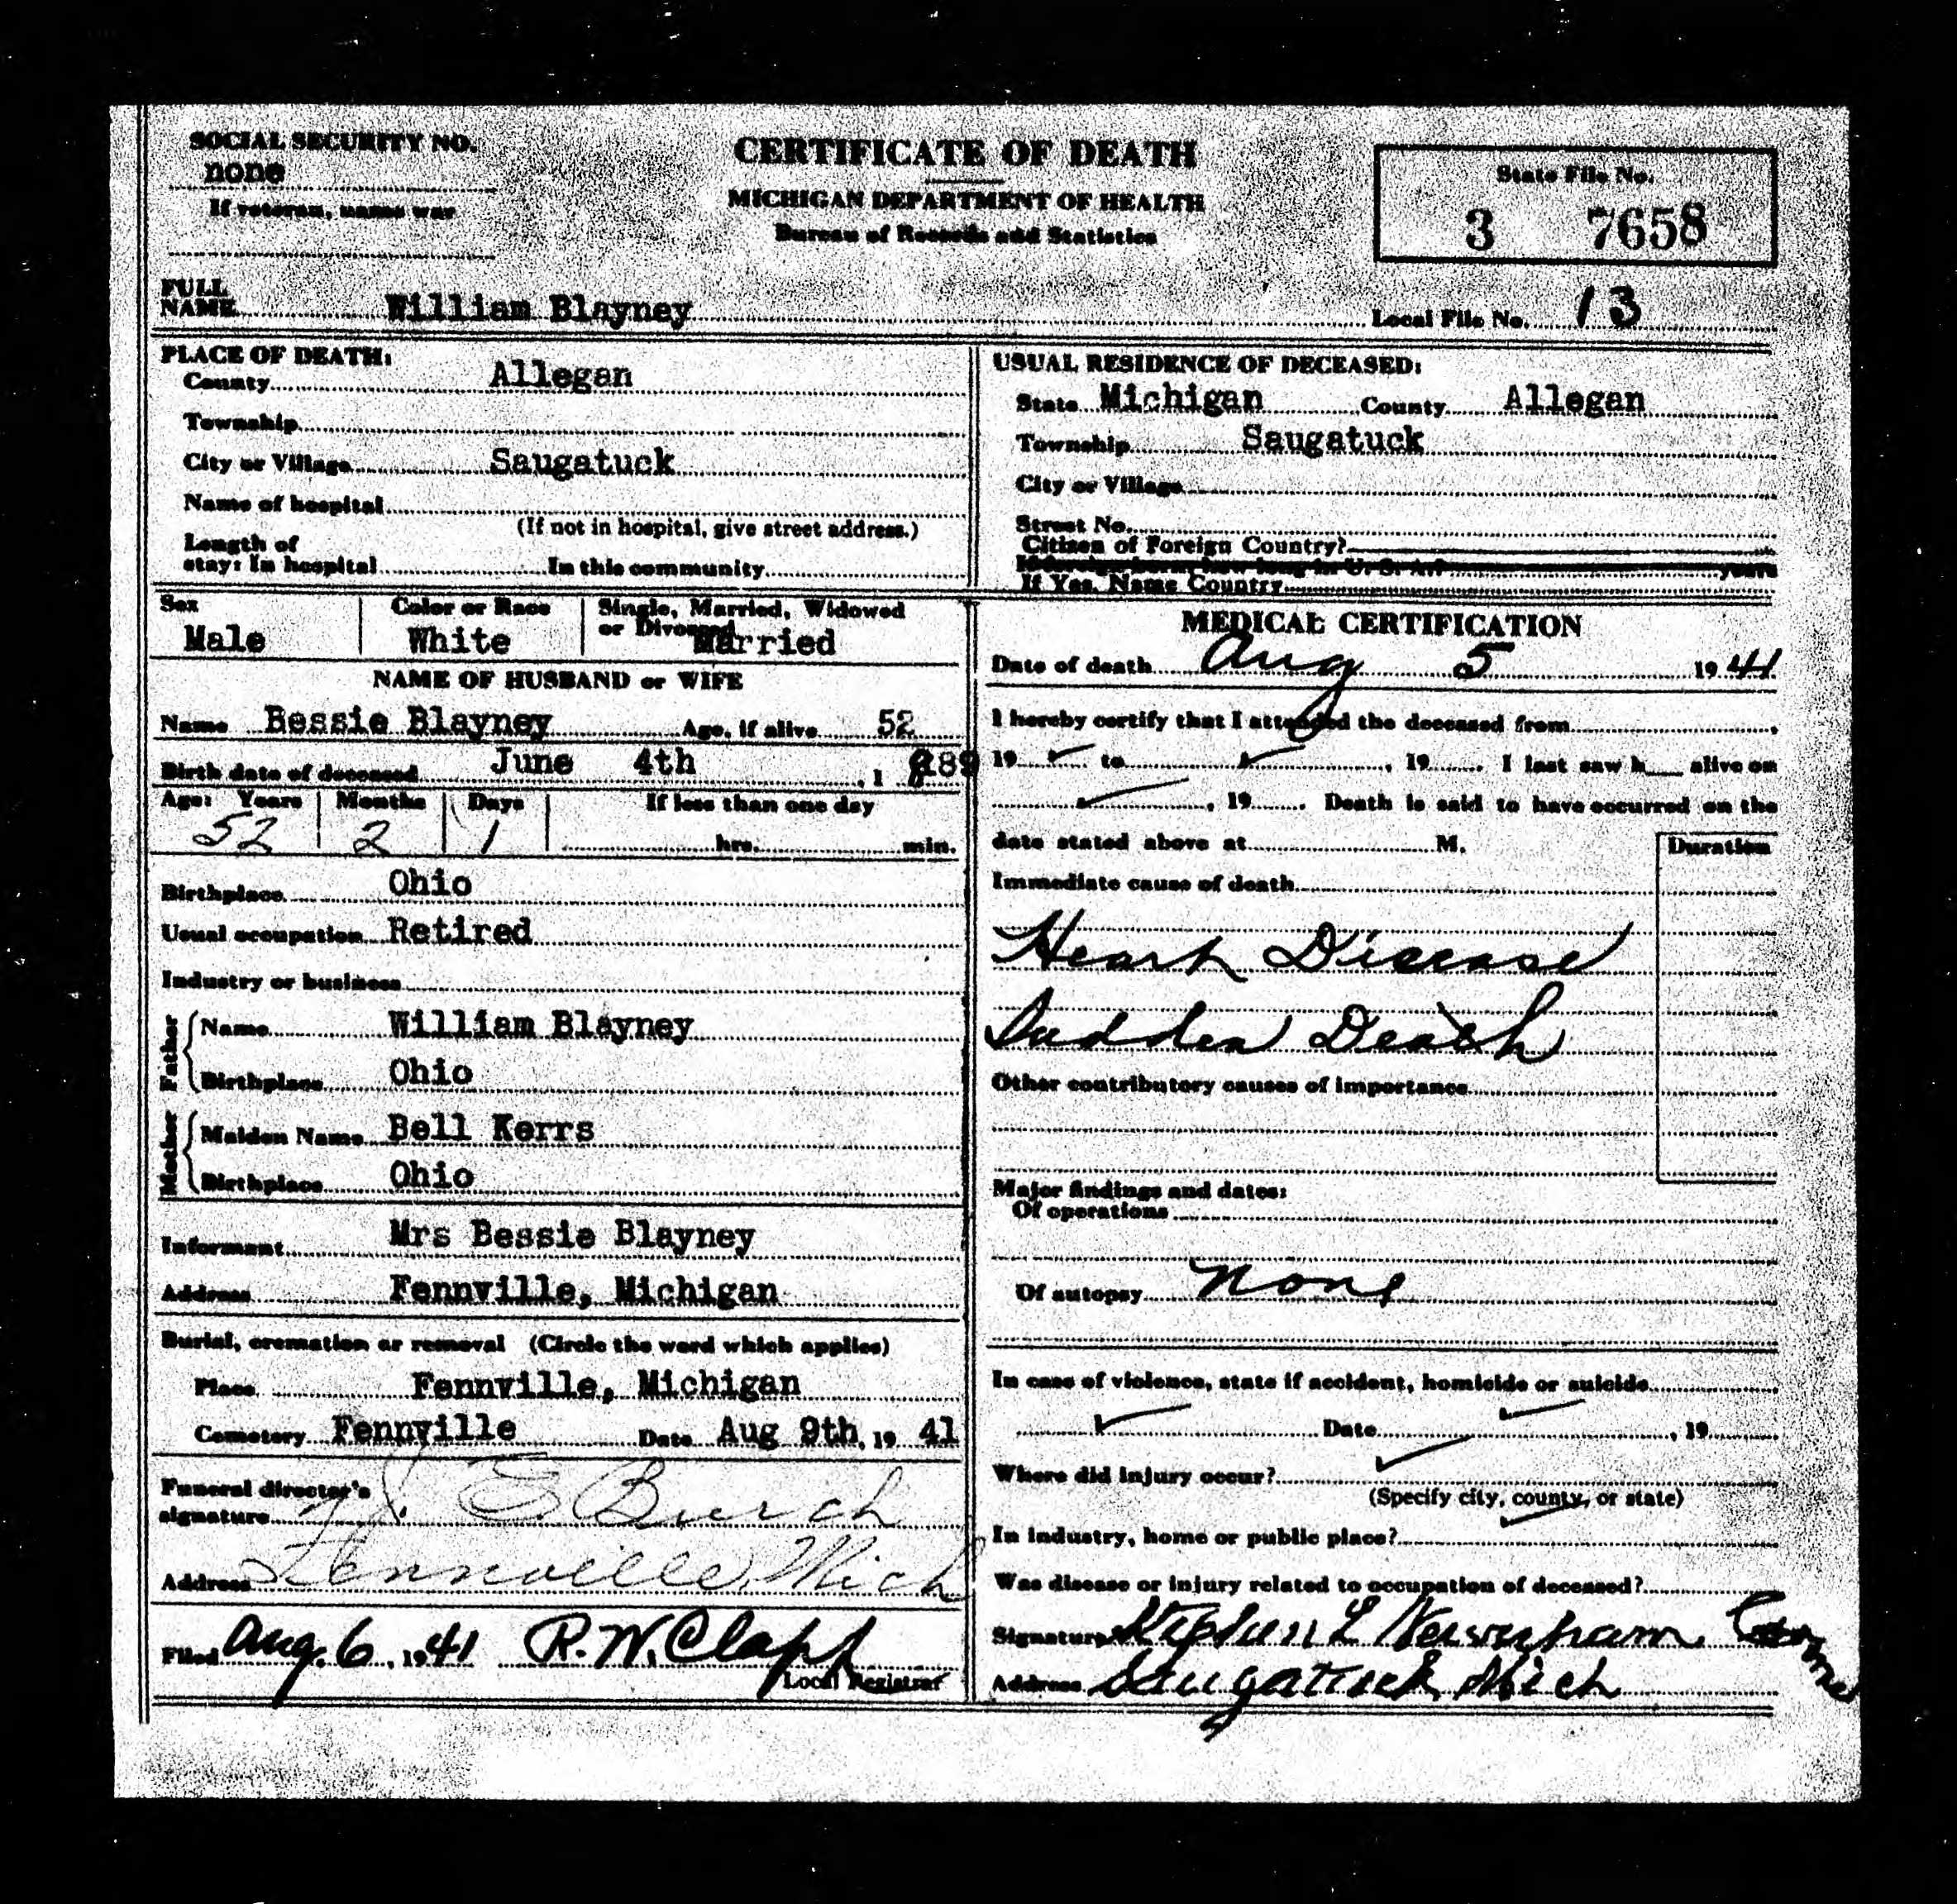 SOCIAL SECURITY NO.
none
If veteran, name war
CERTIFICATE OF DEATH
MICHIGAN DEPARTMENT OF HEALTH
Bureau of Records and Statistics
State File No.
3 7658
FULL NAME William Blayney
Local File No. 13
PLACE OF DEATH:
County Allegan
Township
City or Village Saugatuck
Name of hospital
(If not in hospital, give street address.)
Length of
stay: In hospital In this community
USUAL RESIDENCE OF DECEASED:
State Michigan County Allegan
Township Saugatuck
City or Village
Street No.
Citizen of Foreign Country?
If foreign born, how long in U. S. A.? years
If Yes, Name Country
Sex Color or Race Single, Married, Widowed
or Divorced
Male White Married
NAME OF HUSBAND or WIFE
Name Bessie Blayney Age, if alive 52
Birth date of deceased June 4th , 1 889
Age: Years Months Days If less than one day
52 2 1 hrs. min.
Birthplace Ohio
Usual occupation Retired
Industry or business
Father
Name William Blayney
Birthplace Ohio
Mother
Maiden Name Bell Kerrs
Birthplace Ohio
Informant Mrs Bessie Blayney
Address Fennville, Michigan
Burial, cremation or removal (Circle the word which applies)
Place Fennville, Michigan
Cemetery Fennville Date Aug 9th, 19 41
Funeral director's
signature E Burch
Address Fennville, Mich
Filed Aug. 6, 1941 R. W. Clapp
Local Registrar
MEDICAL CERTIFICATION
Date of death Aug 5 1941
I hereby certify that I attended the deceased from ,
19 to , 19 . I last saw h alive on
, 19 . Death is said to have occurred on the
date stated above at M.
Duration
Immediate cause of death
Heart Disease
Sudden Death
Other contributory causes of importance
Major findings and dates:
Of operations
Of autopsy None
In case of violence, state if accident, homicide or suicide
Date , 19
Where did injury occur?
(Specify city, county, or state)
In industry, home or public place?
Was disease or injury related to occupation of deceased?
Signature Stephen L Newnham
Address Saugatuck Mich